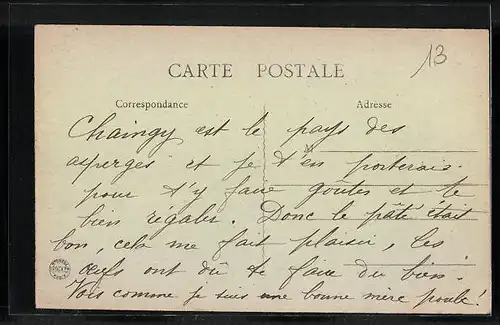 13
CARTE POSTALE
Correspondance
Adresse
Chaingy est le pays des
asperges et je t'en porterais
pour t'y faire goûter et te
bien régaler. Donc le pâté était
bon, cela me fait plaisir, les
œufs ont dû te faire du bien.
Vois comme je suis une bonne mère poule!